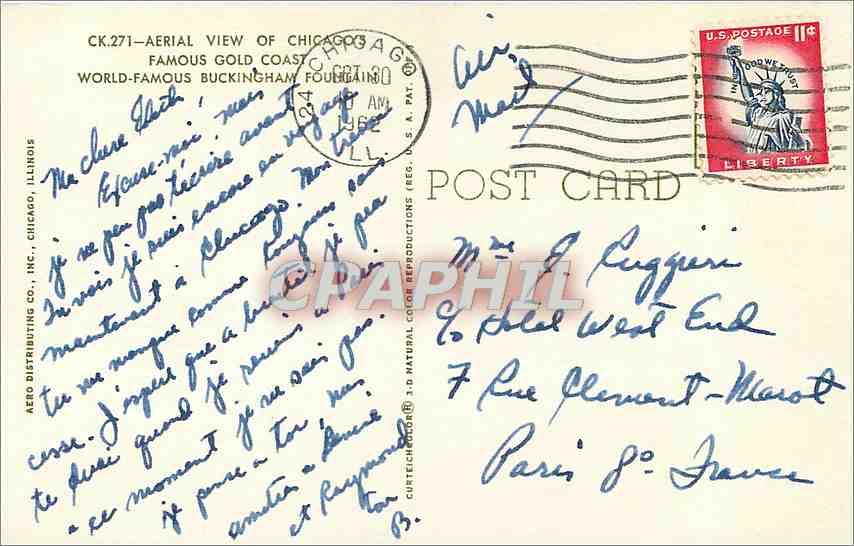 CK.271—AERIAL VIEW OF CHICAGO'S
FAMOUS GOLD COAST
WORLD-FAMOUS BUCKINGHAM FOUNTAIN
Ma chere
Excuse-moi, mais
je ne peu pas t'écrire avant
Tu vois je suis encore en voyage
maintenant a Chicago. Mon travail
tu me manque comme toujours sans
cesse. J'espere que a bientôt je peu
te dire quand je reviens a Paris
a ce moment je ne sais pas.
je pense a toi, mes
amities a Denise
et Raymond
toi
B.
AERO DISTRIBUTING CO., INC., CHICAGO, ILLINOIS
CURTEICHCOLOR® 3-D NATURAL COLOR REPRODUCTIONS (REG. U. S. A. PAT. OFF.
CHICAGO
24
OCT 30
10 AM
1962
ILL.
Air
Mail
U.S. POSTAGE 11¢
IN GOD WE TRUST
LIBERTY
POST CARD
CPAPHIL
Mme J. Ruggieri
c/o Hotel West End
7 Rue Clement-Marot
Paris 8e France